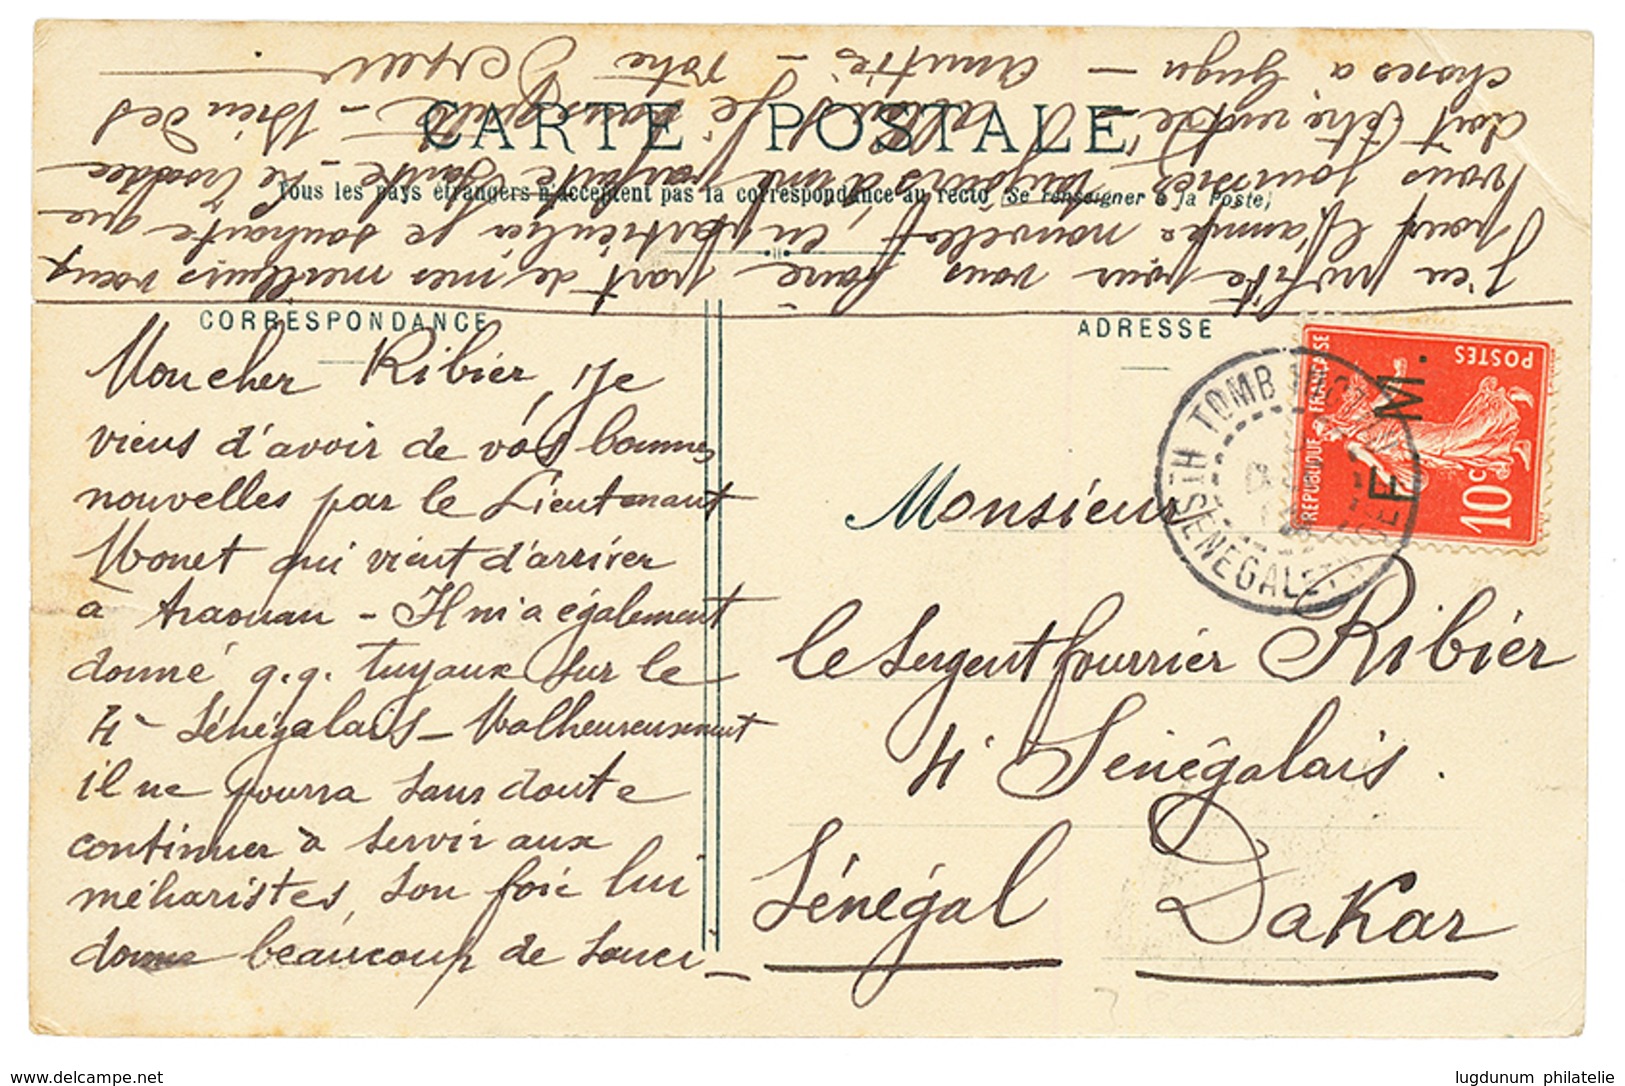 CARTE POSTALE
Tous les pays étrangers n'acceptent pas la correspondance au recto (Se renseigner à la Poste)
CORRESPONDANCE
Mon cher Ribier, Je
viens d'avoir de vos bonnes
nouvelles par le Lieutenant
Monet qui vient d'arriver
à Araouan - Il m'a également
donné q.q. tuyaux sur le
4e Sénégalais - Malheureusement
il ne pourra sans doute
continuer à servir aux
méharistes, son foie lui
donne beaucoup de souci -
J'en profite pour vous faire part de mes meilleurs voeux
pour l'année nouvelle, en particulier je souhaite que
vous jouissiez toujours d'une parfaite santé - Le
doit être rentré - Allons Je vous quitte - Bien des
choses à Gugu - Amitiés - Votre
ADRESSE
Monsieur
le Sergent fourrier Ribier
4e Sénégalais.
Sénégal Dakar
REPUBLIQUE FRANÇAISE
POSTES
10c
F. M.
TOMBOUCTOU
HT SENEGAL ET NIGER
delcampe.net
lugdunum philatelie